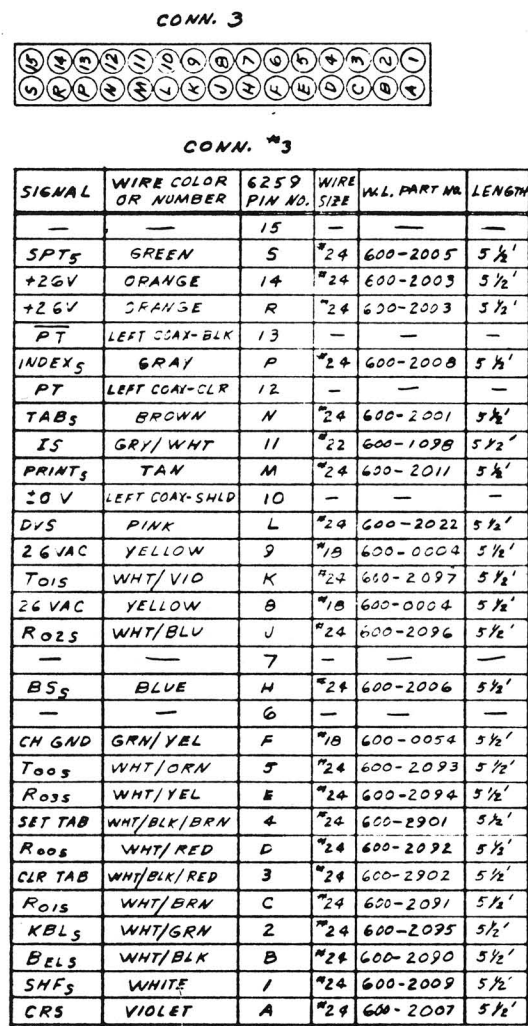 CONN. 3
15 14 13 12 11 10 9 8 7 6 5 4 3 2 1
S R P N M L K J H F E D C B A
CONN. #3
SIGNAL WIRE COLOR OR NUMBER 6259 PIN NO. WIRE SIZE W.L. PART NO. LENGTH
— — 15 — — —
SPTS GREEN S #24 600-2005 5 1/2'
+26V ORANGE 14 #24 600-2003 5 1/2'
+26V ORANGE R #24 600-2003 5 1/2'
P̅T̅ LEFT COAX-BLK 13 — — —
INDEXS GRAY P #24 600-2008 5 1/2'
PT LEFT COAX-CLR 12 — — —
TABS BROWN N #24 600-2001 5 1/2'
IS GRY/WHT 11 #22 600-1098 5 1/2'
PRINTS TAN M #24 600-2011 5 1/2'
±0 V LEFT COAX-SHLD 10 — — —
DVS PINK L #24 600-2022 5 1/2'
26 VAC YELLOW 9 #18 600-0004 5 1/2'
TO1S WHT/VIO K #24 600-2097 5 1/2'
26 VAC YELLOW 8 #18 600-0004 5 1/2'
RO2S WHT/BLU J #24 600-2096 5 1/2'
— — 7 — — —
BSS BLUE H #24 600-2006 5 1/2'
— — 6 — — —
CH GND GRN/YEL F #18 600-0054 5 1/2'
TOOS WHT/ORN 5 #24 600-2093 5 1/2'
RO3S WHT/YEL E #24 600-2094 5 1/2'
SET TAB WHT/BLK/BRN 4 #24 600-2901 5 1/2'
ROOS WHT/RED D #24 600-2092 5 1/2'
CLR TAB WHT/BLK/RED 3 #24 600-2902 5 1/2'
RO1S WHT/BRN C #24 600-2091 5 1/2'
KBLS WHT/GRN 2 #24 600-2095 5 1/2'
BELS WHT/BLK B #24 600-2090 5 1/2'
SHFS WHITE 1 #24 600-2009 5 1/2'
CRS VIOLET A #24 600-2007 5 1/2'